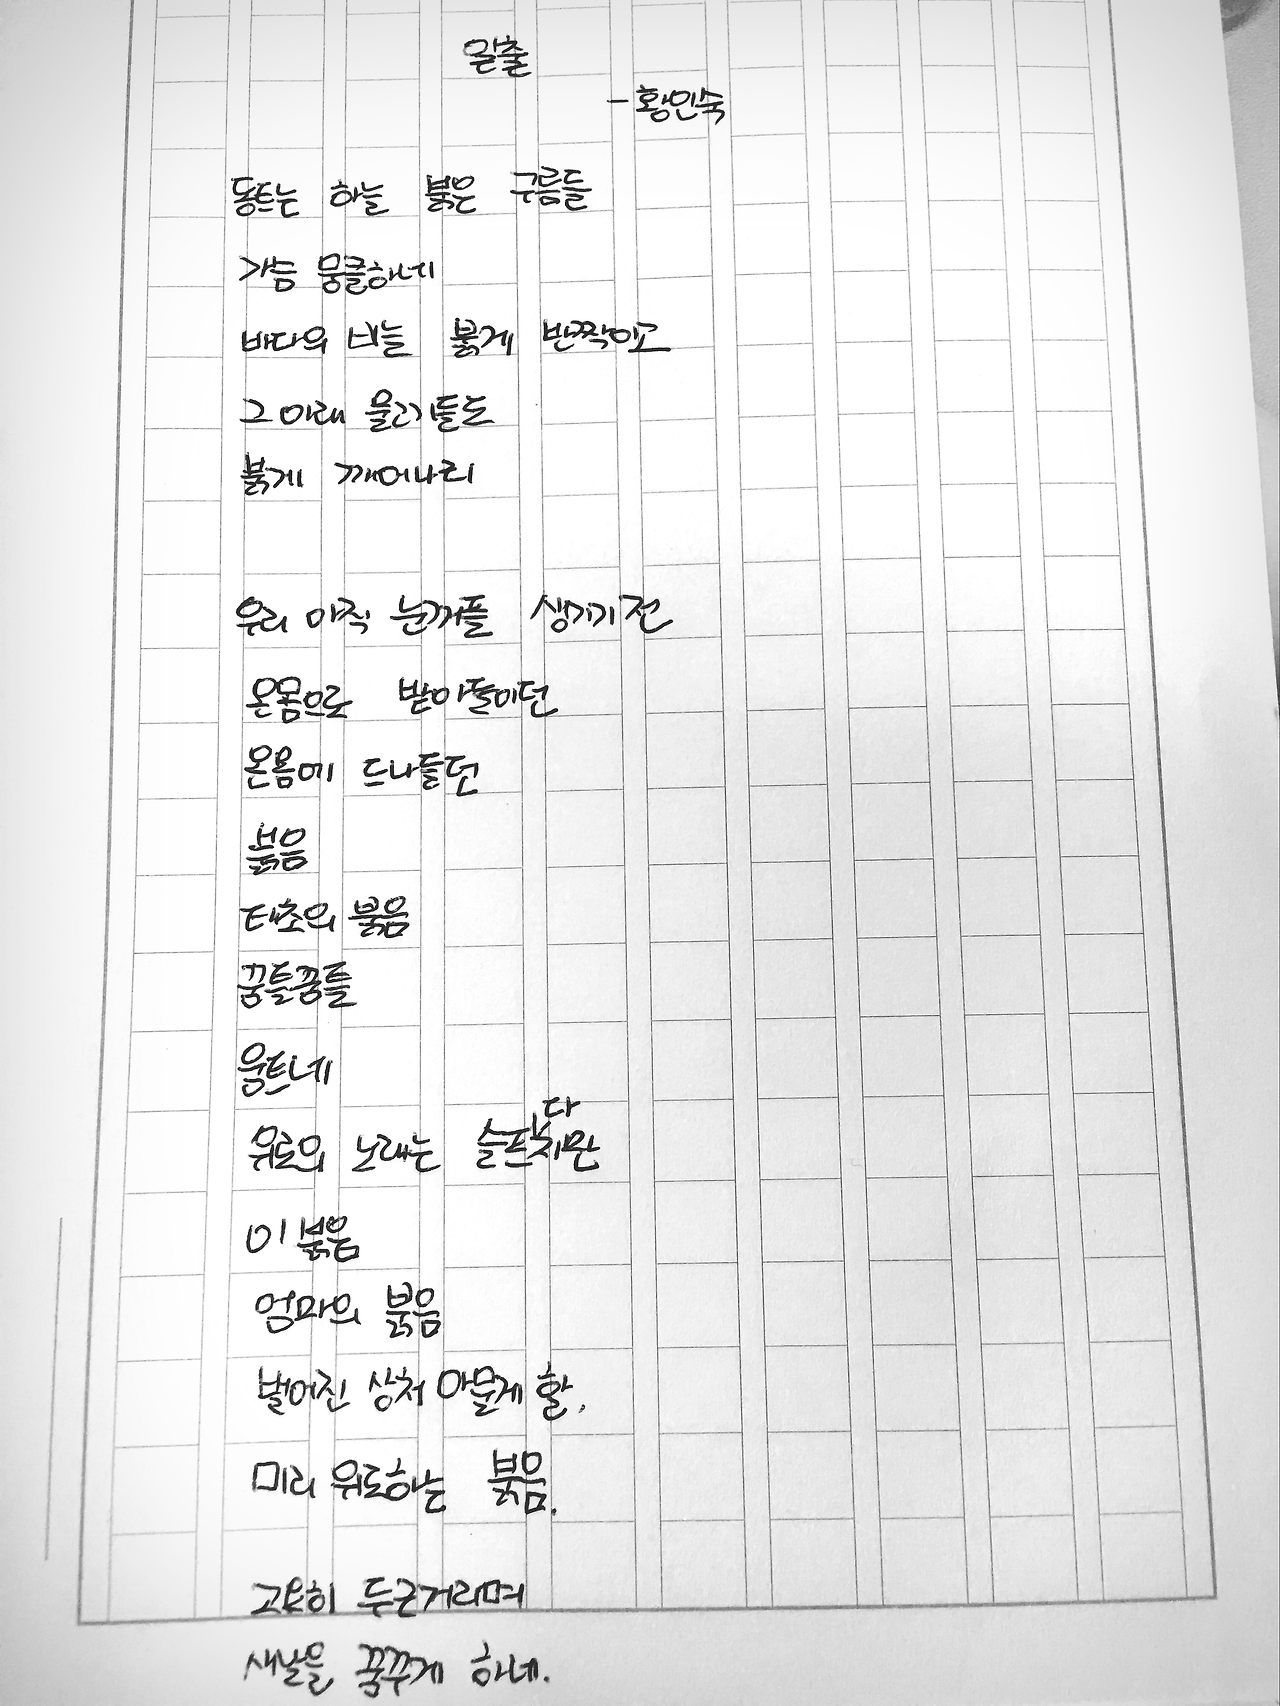 일출
- 황인숙
동트는 하늘 붉은 구름들
가슴 뭉클하네
바다의 비늘 붉게 반짝이고
그 아래 물고기들도
붉게 깨어나리
우리 아직 눈꺼플 생기기 전
온몸으로 받아들이던
온몸에 드나들던
붉음
태초의 붉음
꿈틀꿈틀
움트네
위로의 노래는 슬프다지만
이 붉음
엄마의 붉음
벌어진 상처 아물게 할,
미리 위로하는 붉음.
고요히 두근거리며
새날을 꿈꾸게 하네.